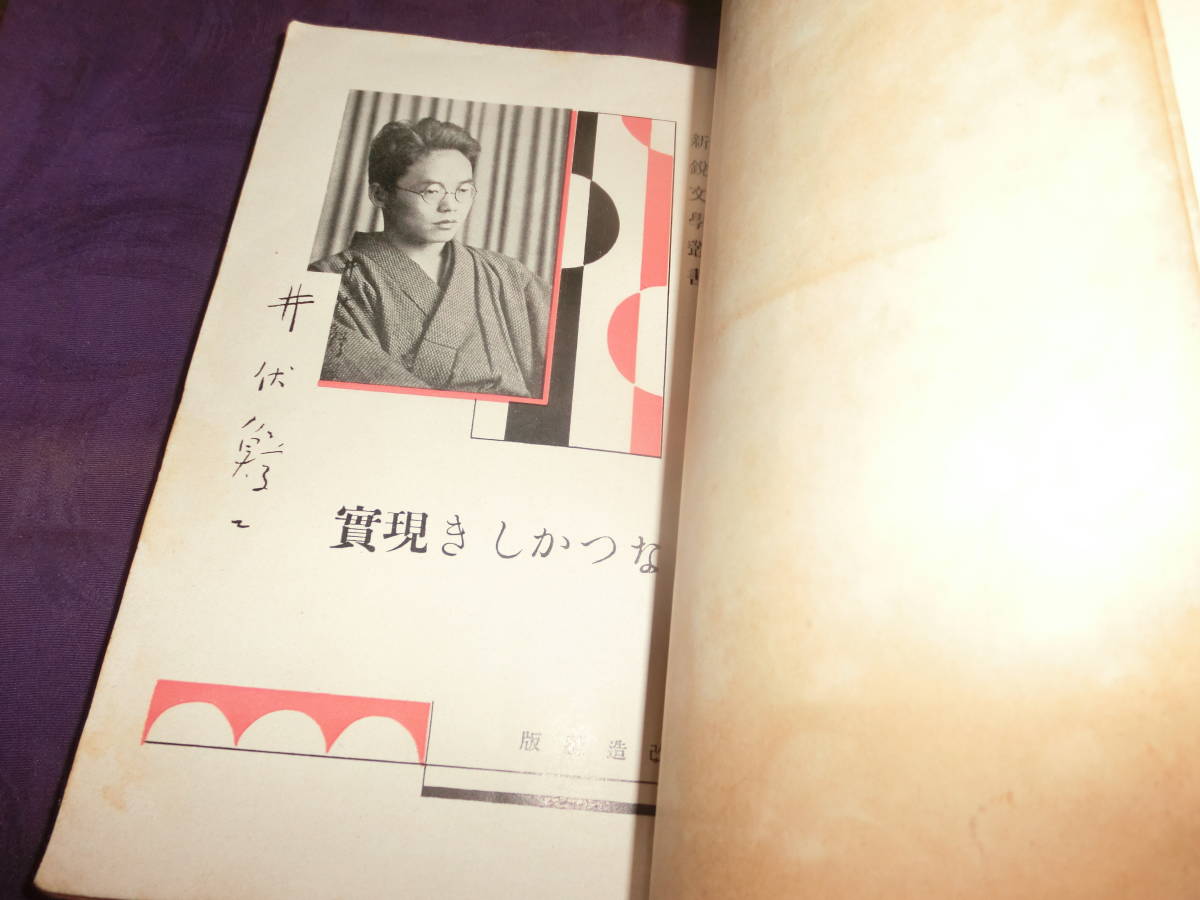 新銳文學叢書
井伏鱒二
なつかしき現實
改造社版